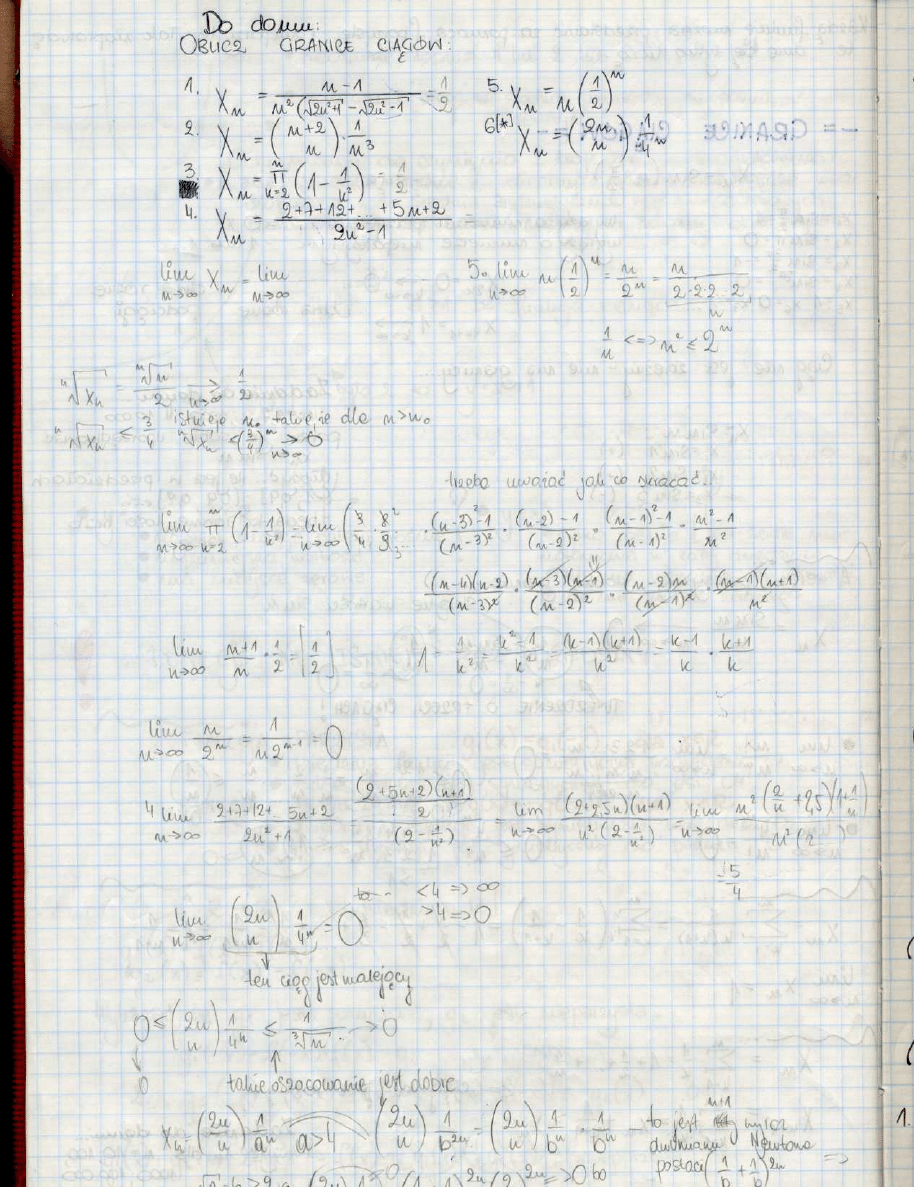 Do domu:
OBLICZ GRANICE CIĄGÓW:
1. X_n = (n-1)/(n²(√(2n²+1) - √(2n²-1))) = 1/2
5. X_n = n(1/2)^n
2. X_n = (n+2 n) · 1/n³
6[*] X_n = (2n n) 1/4^n
3. X_n = n∏k=2 (1 - 1/k²) = 1/2
4. X_n = (2+7+12+...+5n+2)/(2n²-1) =
lim n→∞ X_n = lim n→∞
5. lim n→∞ n(1/2)^n = n/2^n = n/(2·2·2...2) n
1/n <=> n² ≤ 2^n
ⁿ√x_n = ⁿ√n/2 → n→∞ 1/2
ⁿ√x_n ≤ 3/4 istnieje n₀ takie, że dla n>n₀
ⁿ√x_n ≤ (3/4)^n → n→∞ 0
trzeba uważać jak co skracać.
lim n→∞ n∏k=2 (1 - 1/k²) = lim n→∞ (3/4 · 8/9 ... · ((n-3)²-1)/(n-3)² · ((n-2)²-1)/(n-2)² · ((n-1)²-1)/(n-1)² · (n²-1)/n²
((n-4)(n-2))/(n-3)² · ((n-3)(n-1))/(n-2)² · ((n-2)n)/(n-1)² · ((n-1)(n+1))/n²
lim n→∞ (n+1)/n · 1/2 = [1/2]
1 - 1/k² = (k²-1)/k² = ((k-1)(k+1))/k² = (k-1)/k · (k+1)/k
lim n→∞ n/2^n = 1/(n2^(n-1)) = 0
4 lim n→∞ (2+7+12+...5n+2)/(2n²+1) = ((2+5n+2)(n+1)/2)/(2-1/n²) = lim n→∞ ((2+2,5n)(n+1))/(n²(2-1/n²)) = lim n→∞ n²(2/n+2,5)(1+1/n)/n²(2 )
5/4
to... <4 => ∞
>4 => 0
lim n→∞ (2n n) 1/4^n = 0
ten ciąg jest malejący
0 ≤ (2n n) 1/4^n ≤ 1/³√n → 0
0 takie oszacowanie jest dobre
X_n = (2n n) 1/a^n a>4 (2n n) 1/b^2n = (2n n) 1/b^n · 1/b^n - to jest n+1 wyraz
dwumianu Newtona
postaci (1/b + 1/b)^2n =>
1.